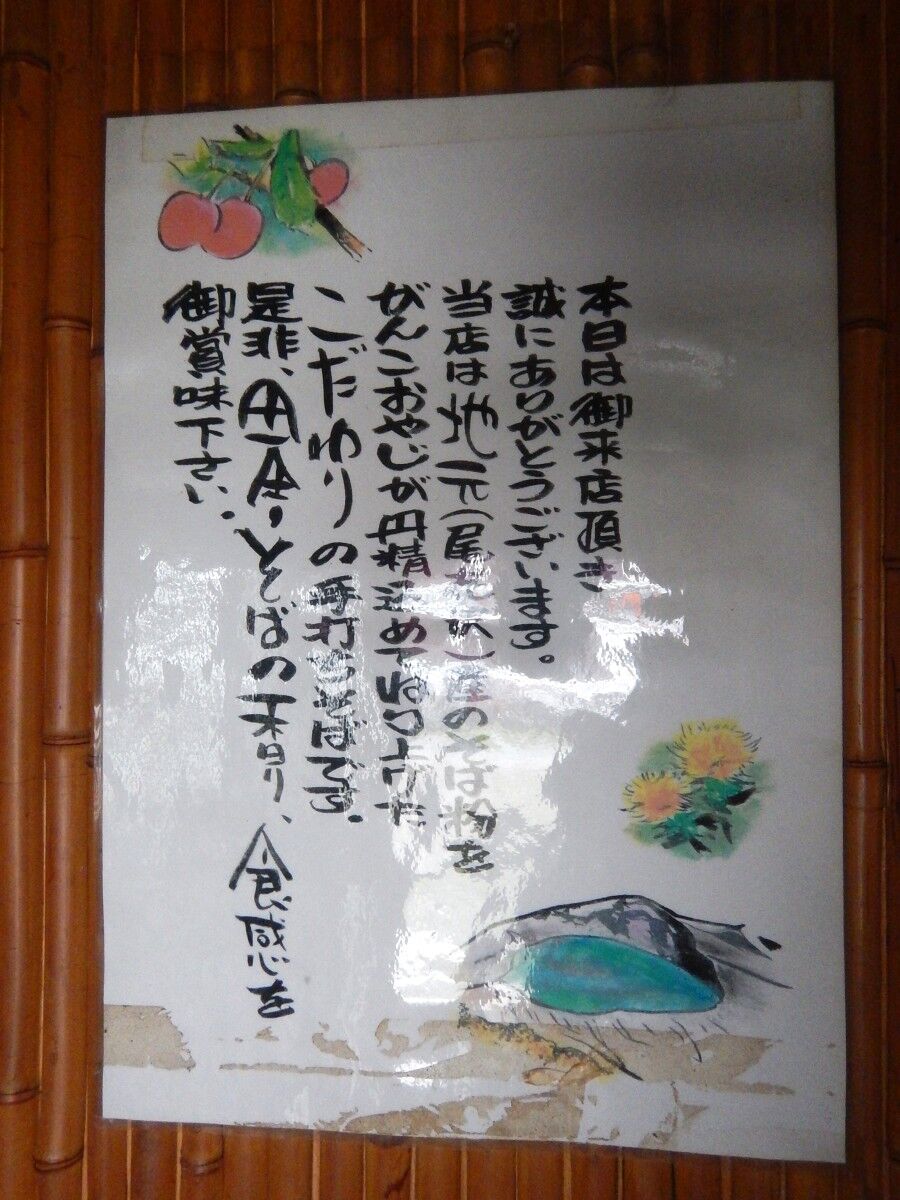 本日は御来店頂き
誠にありがとうございます。
当店は地元(尾花沢)産のそば粉を
がんこおやじが丹精込めてねり上げた
こだわりの手打ちそばです。
是非、そばの香り、食感を
御賞味下さい。